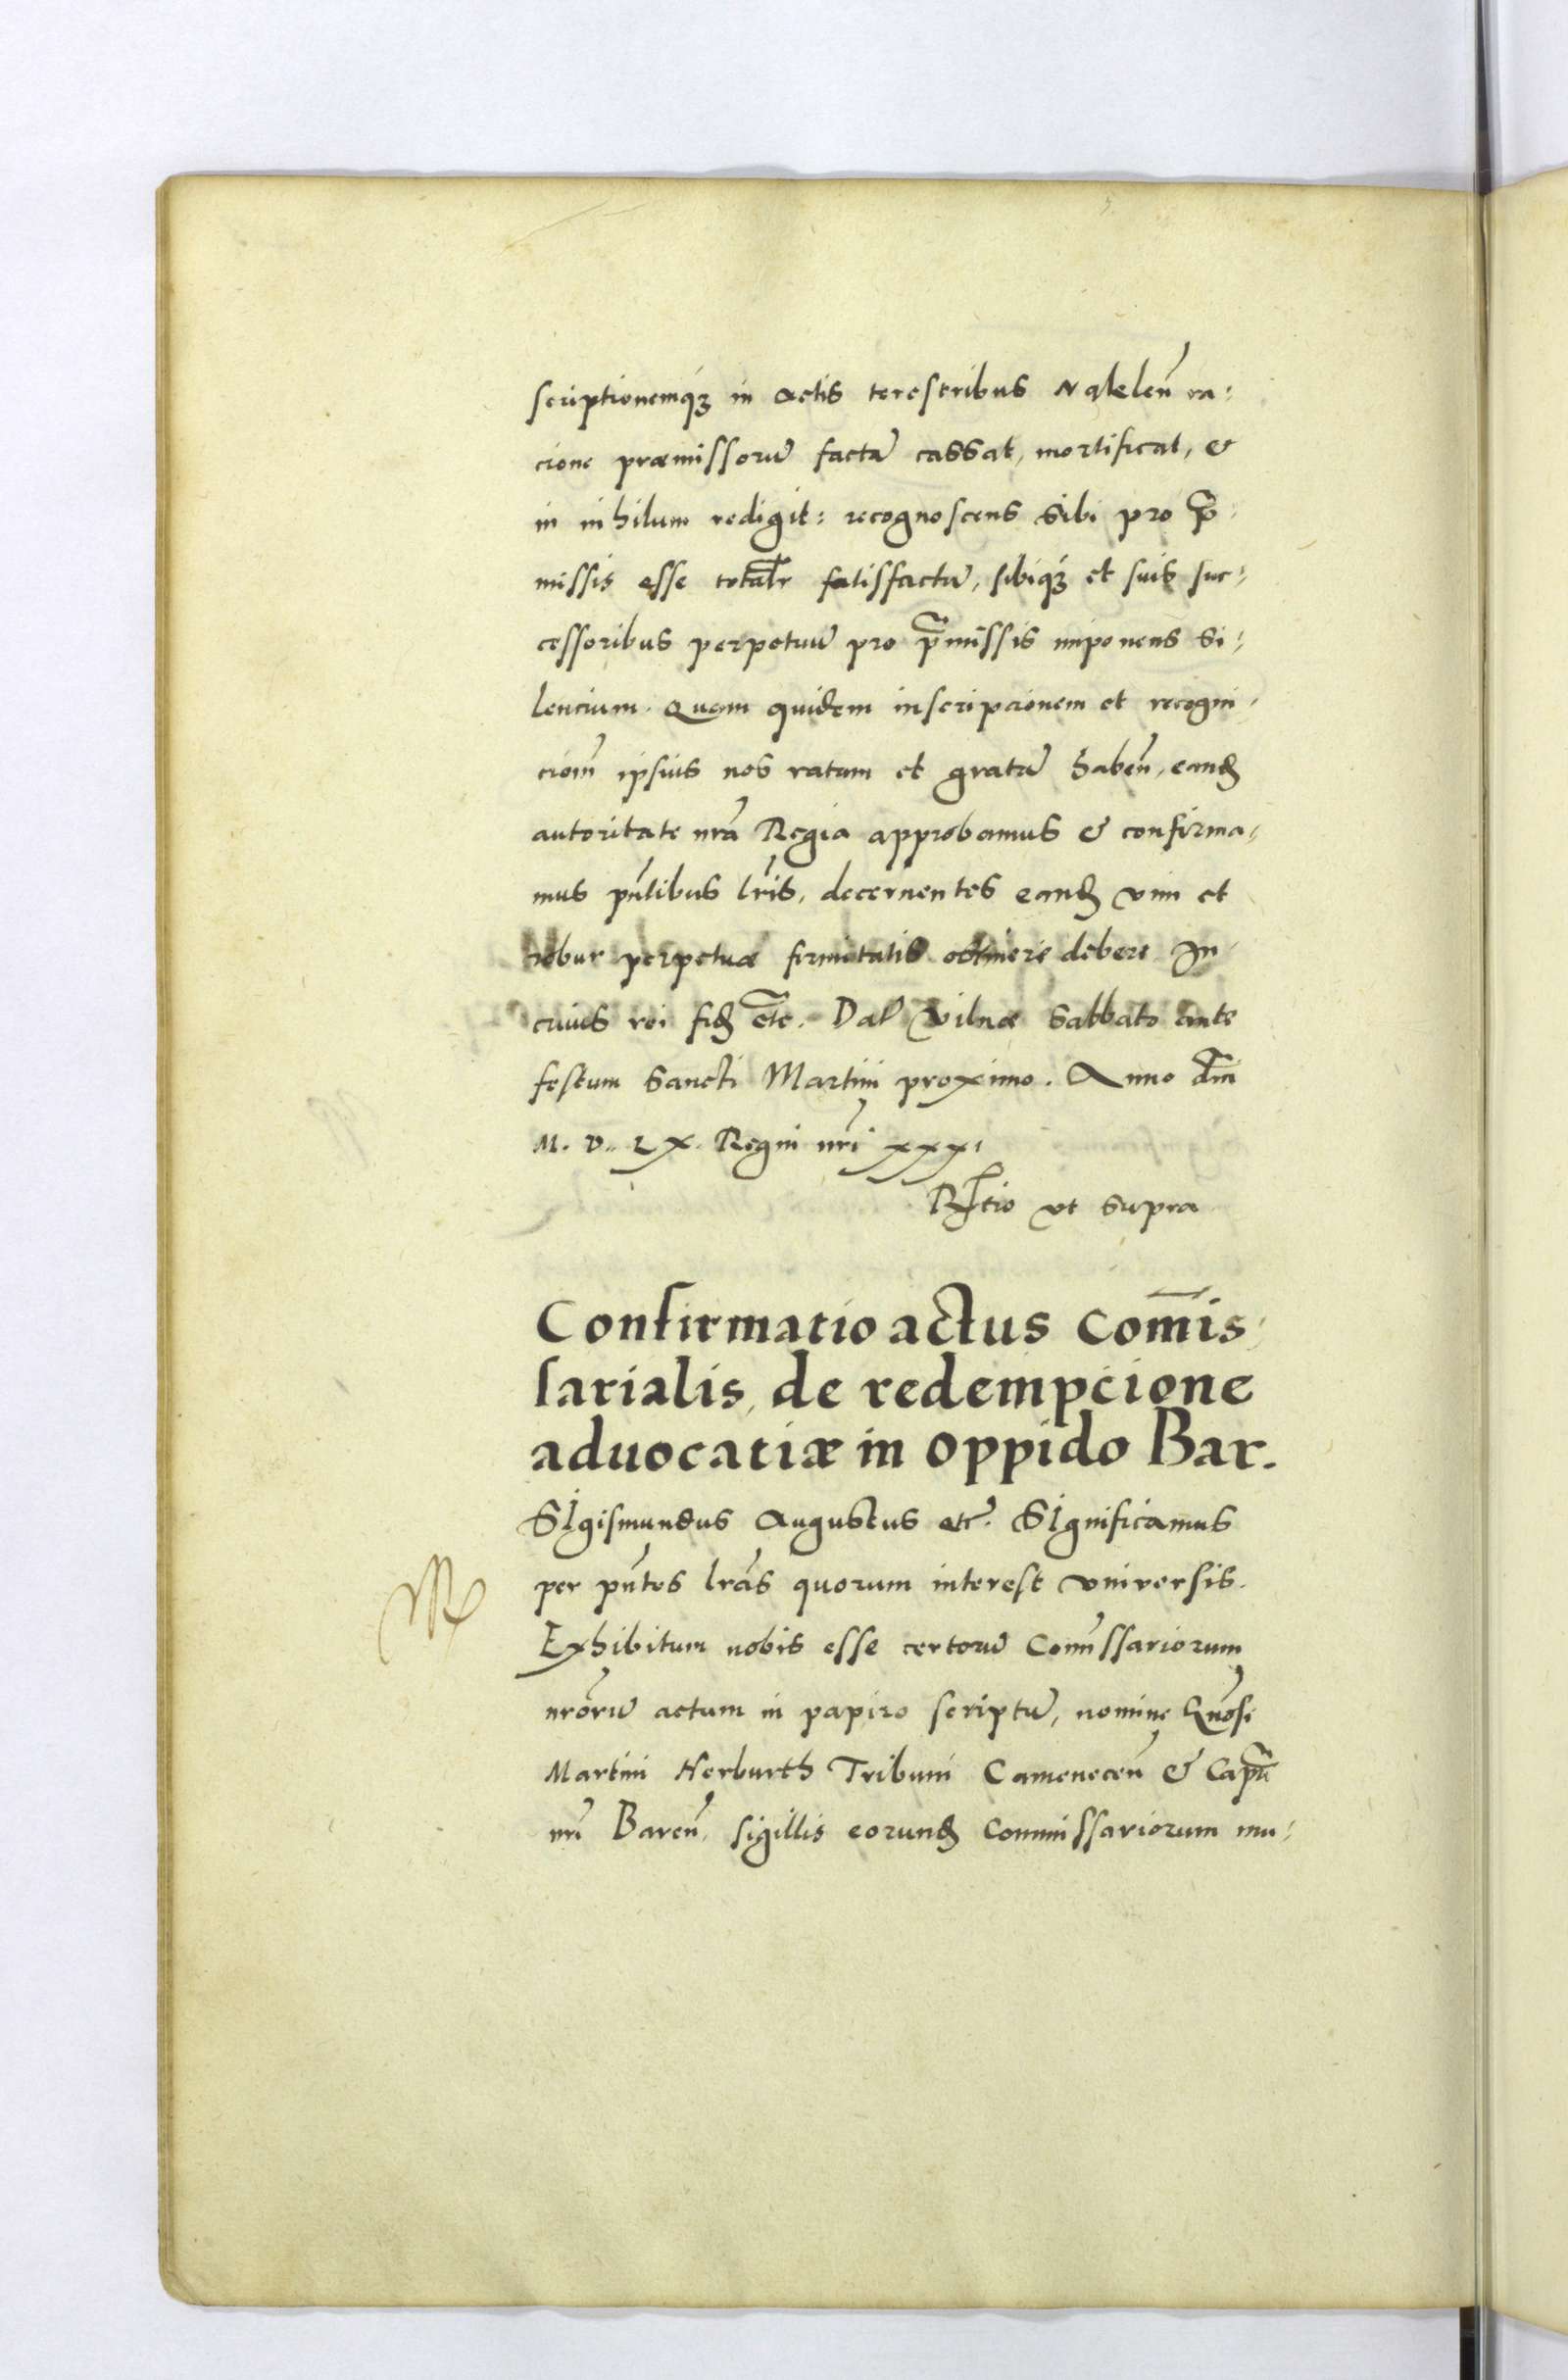 scriptionemq₃ in actis terestribus Naklen̄ ra:
cione præmissorū factā cassat, mortificat, &
in nihilum redigit: recognoscens sibi pro p̄:
missis esse totalr̄ satisfactū, sibiq₃ et suis suc:
cessoribus perpetuū pro p̄missis imponens si:
lencium. Quam quidem inscripcionem et recogni:
ciom̄ ipsius nos ratam et gratā haben̄, eand̄
autoritate nrā Regia approbamus & confirma:
mus pn̄tibus lr̄is, decernentes eand̄ vim et
robur perpetuæ firmitatis obtinere debere In
cuius rei fid̄ etc̄. Dat̄ Vilnæ Sabbato ante
festum Sancti Martini proximo. Anno dn̄i
M. D. LX. Regni nrī xxxi
Rl̄tio vt supra
Confirmatio actus Com̄is:
sarialis, de redempcione
aduocatiæ in oppido Bar.
SIgismundus Augustus etc̄. SIgnificamus
per pn̄tes lrās quorum interest vniversis.
Exhibitum nobis esse certorū Com̄issariorum
nrōrū actum in papiro scriptū, nomine Gn̄osi
Martini Herburth Tribuni Camenecen̄ & Capn̄
nrī Baren̄, sigillis eorund̄ Commissariorum mu: